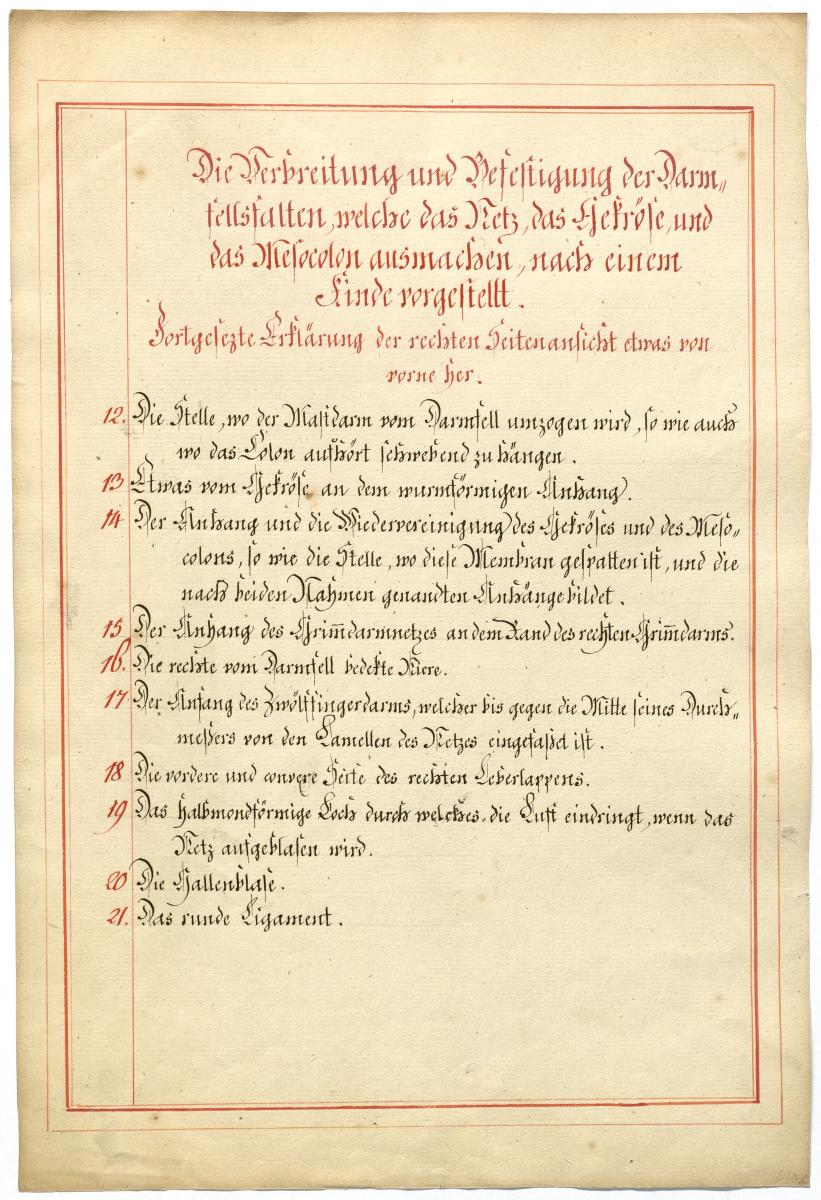 Die Verbreitung und Befestigung der Darm„
fellsfalten, welche das Netz, das Gekröse, und
das Mesocolon ausmachen, nach einem
Kinde vorgestellt.
Fortgesezte Erklärung der rechten Seitenansicht etwas von
vorne her.
12. Die Stelle, wo der Mastdarm vom Darmfell umzogen wird, so wie auch
wo das Colon aufhört schwebend zu hängen.
13 Etwas vom Gekröse an dem wurmförmigen Anhang.
14 Der Anhang und die Wiedervereinigung des Gekröses und des Meso„
colons, so wie die Stelle, wo diese Membran gespalten ist, und die
nach beiden Nahmen genandten Anhänge bildet.
15 Der Anhang des Grim̅darmnetzes an dem Rand des rechten Grim̅darms.
16. Die rechte vom Darmfell bedekte Niere.
17 Der Anfang des Zwölffingerdarms, welcher bis gegen die Mitte seines Durch„
meßers von den Lamellen des Netzes eingefaßet ist.
18 Die vordere und convexe Seite des rechten Leberlappens.
19 Das halbmondförmige Loch durch welches die Luft eindringt, wenn das
Netz aufgeblasen wird.
20 Die Gallenblase.
21. Das runde Ligament.